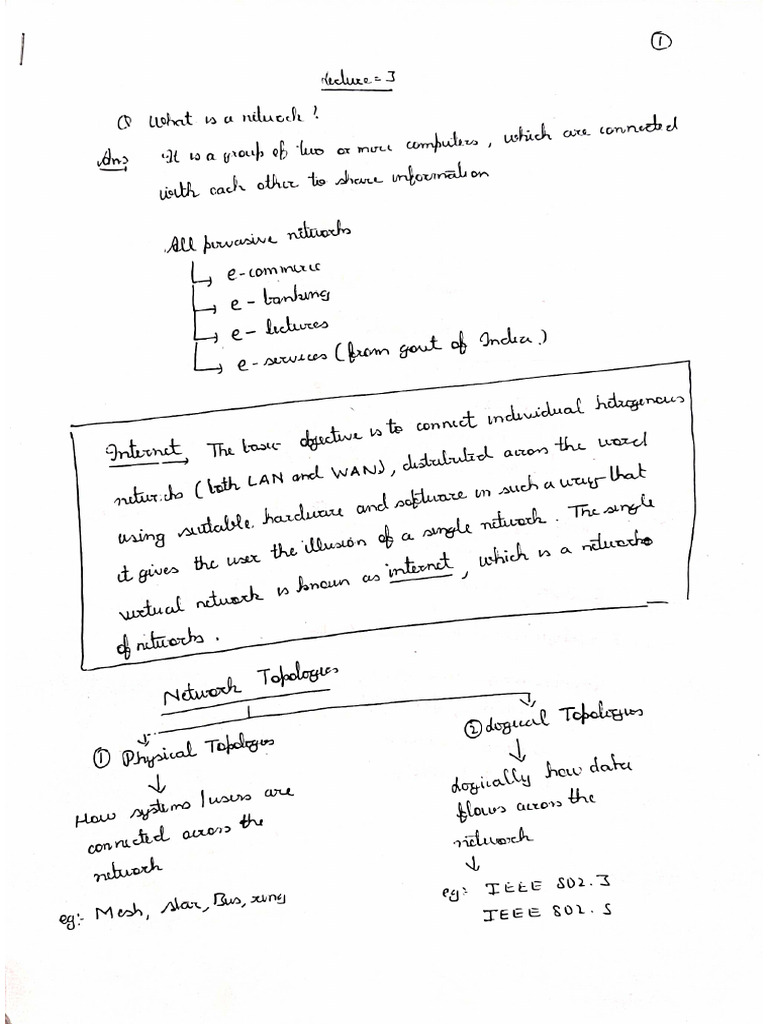 ①
Lecture = 3
Q What is a network?
Ans It is a group of two or more computers, which are connected
with each other to share information
All pervasive networks
e-commerce
e-banking
e-lectures
e-services (from govt of India.)
Internet → The basic objective is to connect individual hetrogenous
networks (both LAN and WAN), distributed across the word
using suitable hardware and software in such a way that
it gives the user the illusion of a single network. The single
virtual network is known as internet, which is a network
of networks.
Network Topologies
① Physical Topologies
↓
How systems/users are
connected across the
network
eg:- Mesh, star, Bus, ring
② Logical Topologies
↓
Logically how data
flows across the
network
↓
eg:- IEEE 802.3
IEEE 802.5